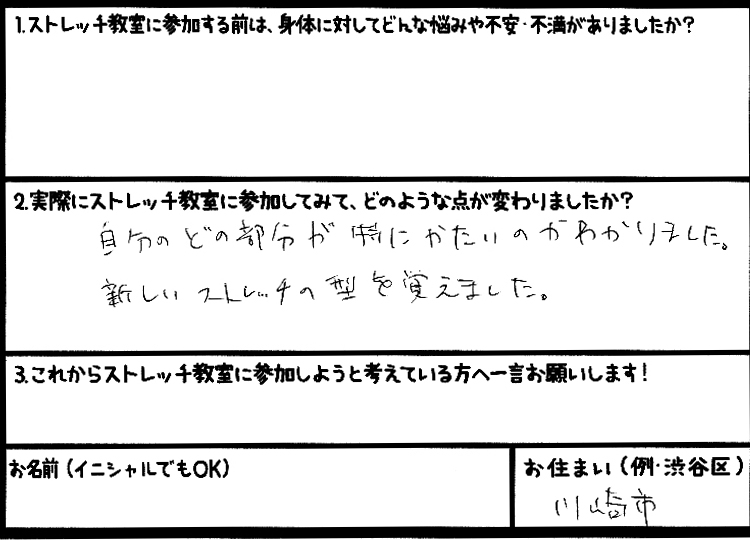 1.ストレッチ教室に参加する前は、身体に対してどんな悩みや不安・不満がありましたか?
2.実際にストレッチ教室に参加してみて、どのような点が変わりましたか?
自分のどの部分が特にかたいのかわかりました。
新しいストレッチの型を覚えました。
3.これからストレッチ教室に参加しようと考えている方へ一言お願いします!
お名前(イニシャルでもOK)
お住まい(例・渋谷区)
川崎市